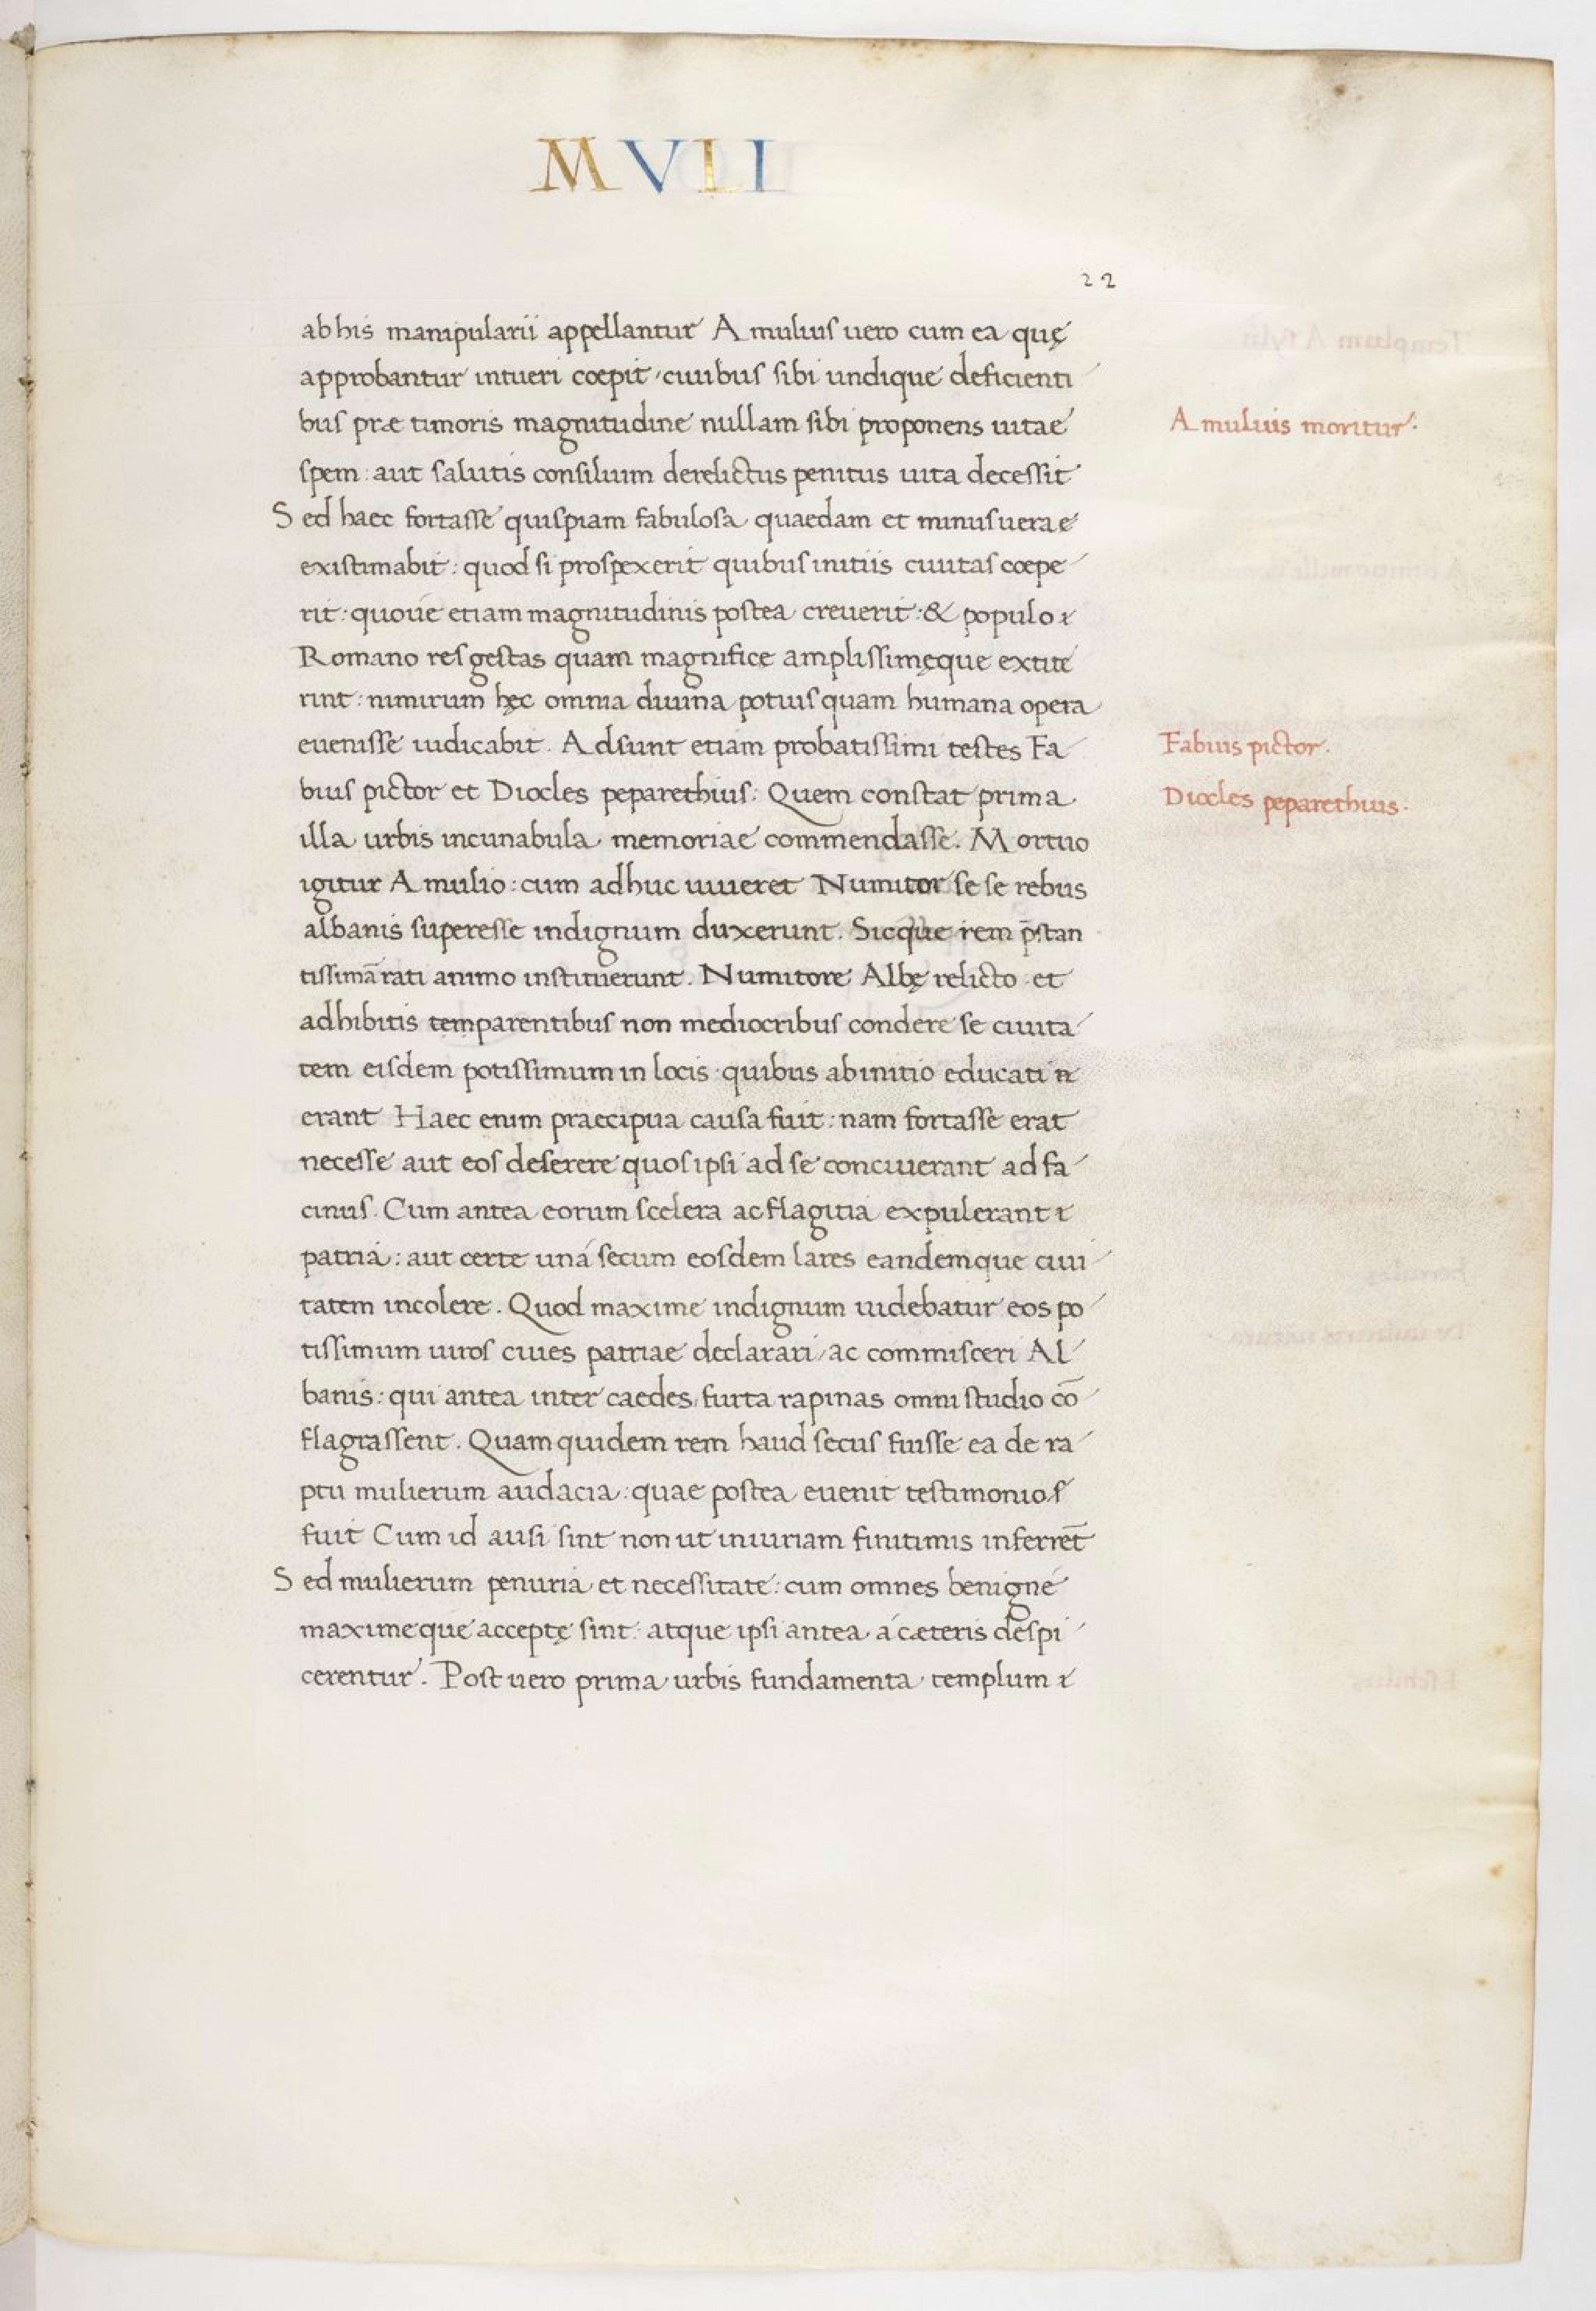 MVLI
22
ab his manipularii appellantur Amulius uero cum ea quę
approbantur intueri coepit, ciuibus sibi undique deficienti
bus præ timoris magnitudine nullam sibi proponens uitae
Amulius moritur.
spem: aut salutis consilium derelictus penitus uita decessit
Sed haec fortasse quispiam fabulosa quaedam et minus uerae
existimabit: quod si prospexerit quibus initiis ciuitas coepe
rit: quoue etiam magnitudinis postea creuerit: & populo
Romano res gestas quam magnifice amplissimęque extite
rint: nimirum hęc omnia diuina potius quam humana opera
euenisse iudicabit. Adsunt etiam probatissimi testes Fa
Fabius pictor.
bius pictor et Diocles peparethius: Quem constat prima
Diocles peparethius.
illa urbis incunabula memoriae commendasse. Mortuo
igitur Amulio: cum adhuc uiueret Numitor se se rebus
albanis superesse indignum duxerunt. Sicque rem p̄stan
tissimā rati animo instituerunt. Numitore Albę relicto et
adhibitis temparentibus non mediocribus condere se ciuita
tem eisdem potissimum in locis: quibus ab initio educati
erant Haec enim praecipua causa fuit: nam fortasse erat
necesse aut eos deserere quos ipsi ad se conciuerant ad fa
cinus. Cum antea eorum scelera ac flagitia expulerant
patria: aut certe uná secum eosdem lares eandemque ciui
tatem incolere. Quod maxime indignum uidebatur eos po
tissimum uiros ciues patriae declarari, ac commisceri Al
banis: qui antea inter caedes, furta rapinas omni studio cō
flagrassent. Quam quidem rem haud secus fuisse ea de ra
ptu mulierum audacia: quae postea euenit testimonio
fuit Cum id ausi sint non ut iniuriam finitimis inferrēt
Sed mulierum penuria et necessitate: cum omnes benigné
maximeque acceptę sint: atque ipsi antea á cæteris despi
cerentur. Post uero prima urbis fundamenta templum